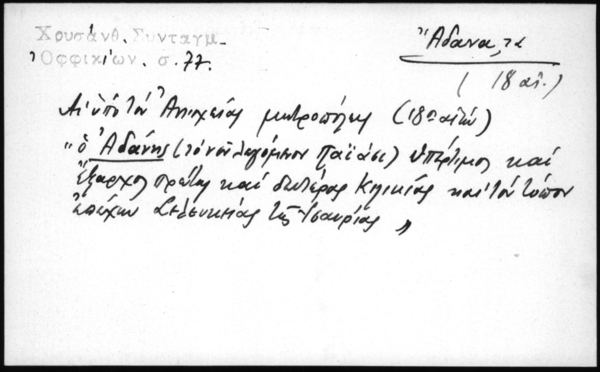 Χρυσάνθ. Συνταγμ.
Ὀφφικίων. σ. 77.
Ἄδανα, τα
(18 αἰ.)
Αἱ ὑπό τόν Ἀντιοχείας μητροπόλεις (18ος αἰών)
"ὁ Ἀδάνης (τό νῦν λεγόμενον Παϊάσι) ὑπέρτιμος καί
ἔξαρχος πρώτης καί δευτέρας Κιλικίας καί τόν τόπον
ἐπέχων Σελευκείας τῆς Ἰσαυρίας"